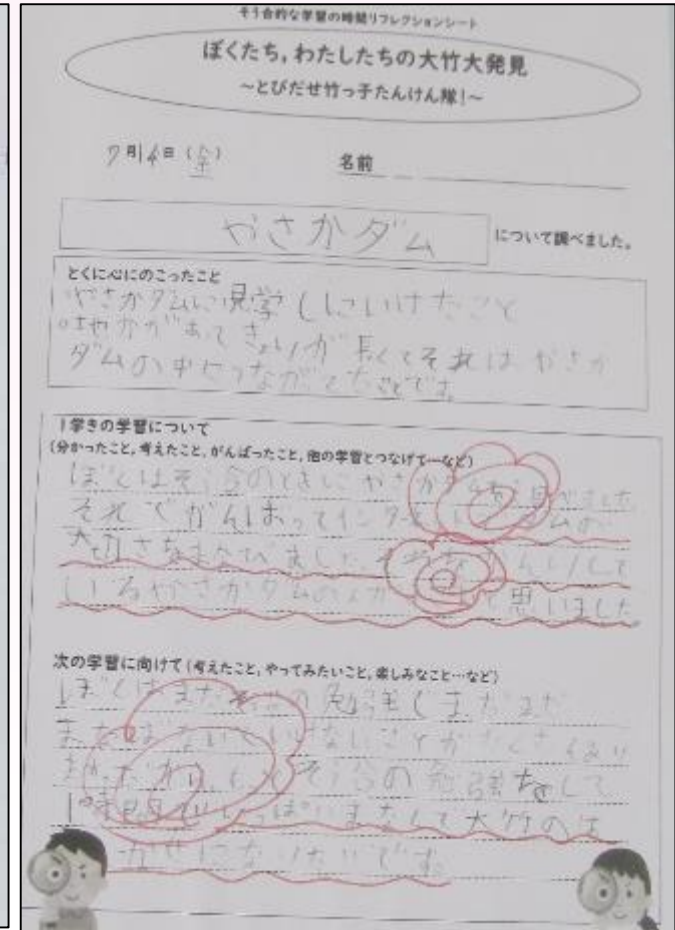 そう合的な学習の時間リフレクションシート
ぼくたち,わたしたちの大竹大発見
～とびだせ竹っ子たんけん隊!～
7月14日(金)
名前
やさかダム
について調べました。
とくに心にのこったこと
やさかダムに見学しにいけたこと
があって きょりが長くてそれは やさか
ダムの中につながってたことです。
1学きの学習について
(分かったこと,考えたこと,がんばったこと,他の学習とつなげて…など)
ぼくはそう合のときに やさか べました
それでがんばってインター ムの
大切さをまなびました。
いるやさかダムの と思いました
次の学習に向けて(考えたこと,やってみたいこと,楽しみなこと…など)
ぼくはまだ の勉強しまだまだ
まなばないといけないことがたくさん
そう合の勉強をして
いっぱいまなして大竹のは
かせになりたいです。